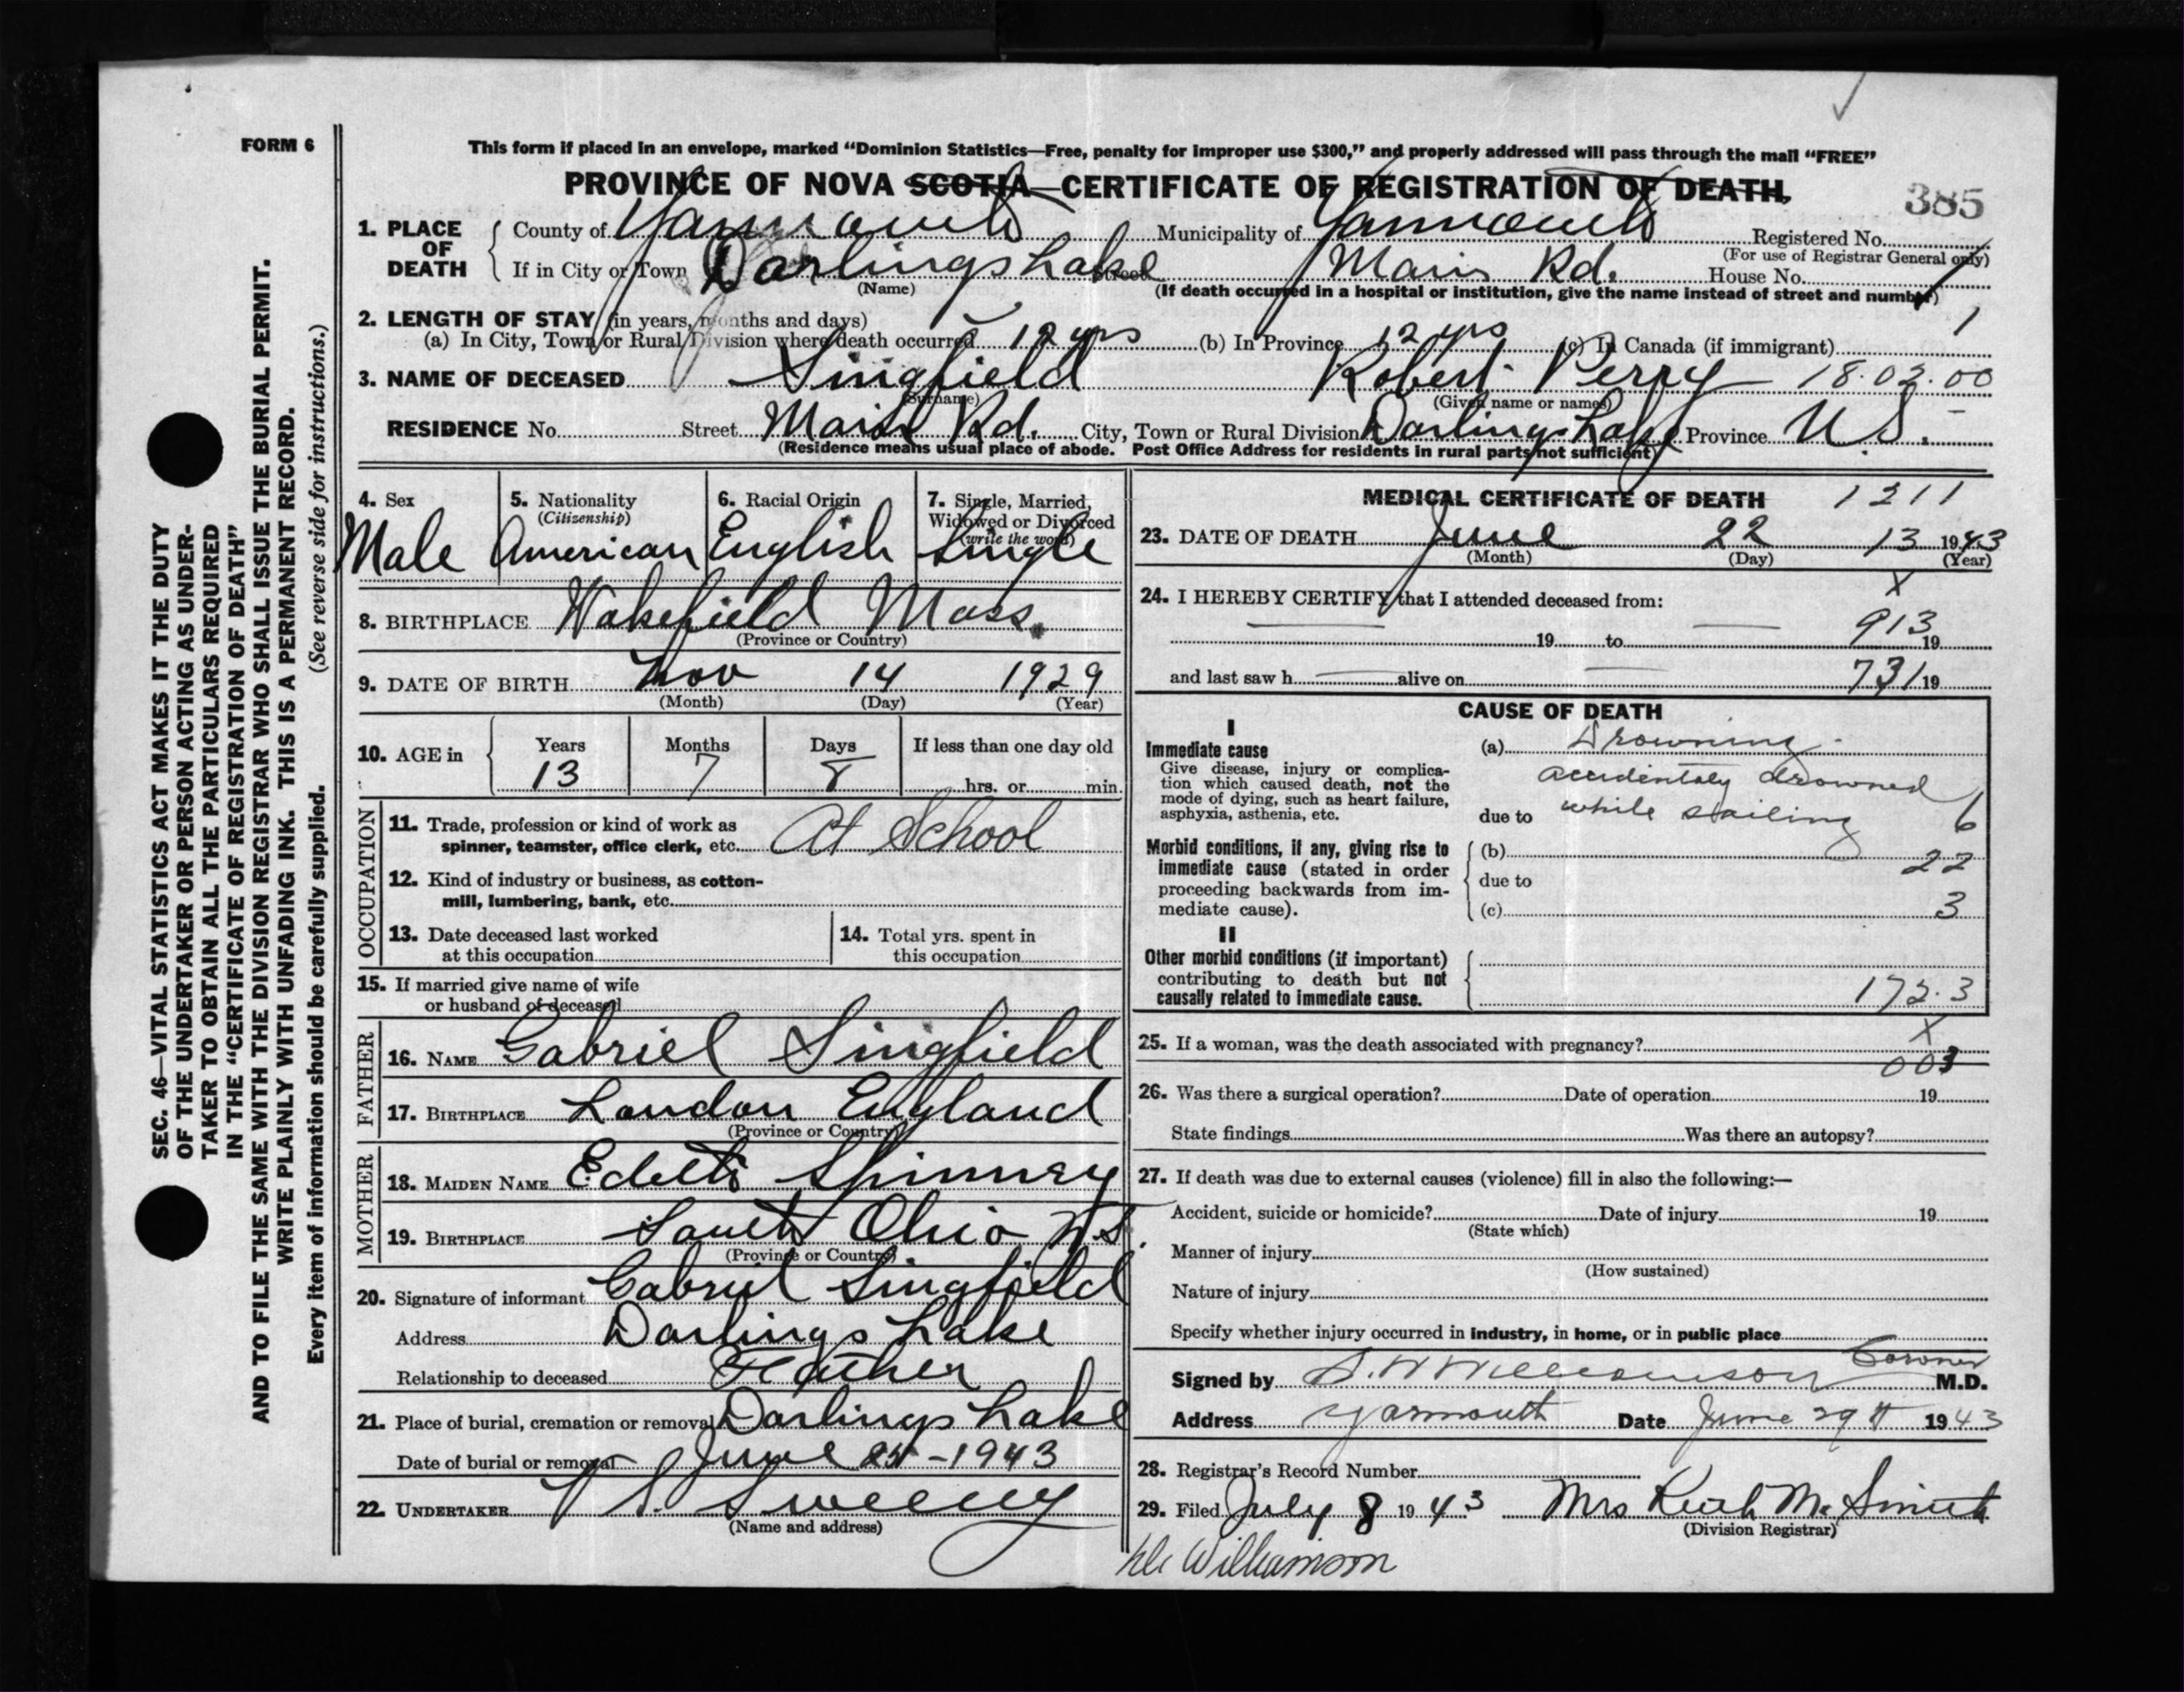 FORM 6
SEC. 46—VITAL STATISTICS ACT MAKES IT THE DUTY
OF THE UNDERTAKER OR PERSON ACTING AS UNDER-
TAKER TO OBTAIN ALL THE PARTICULARS REQUIRED
IN THE "CERTIFICATE OF REGISTRATION OF DEATH"
AND TO FILE THE SAME WITH THE DIVISION REGISTRAR WHO SHALL ISSUE THE BURIAL PERMIT.
WRITE PLAINLY WITH UNFADING INK. THIS IS A PERMANENT RECORD.
Every item of information should be carefully supplied. (See reverse side for instructions.)
This form if placed in an envelope, marked "Dominion Statistics—Free, penalty for improper use $300," and properly addressed will pass through the mail "FREE"
PROVINCE OF NOVA SCOTIA—CERTIFICATE OF REGISTRATION OF DEATH
385
1. PLACE OF DEATH County of Yarmouth Municipality of Yarmouth Registered No.
(For use of Registrar General only)
If in City or Town Darlings Lake Street Main Rd. House No.
(Name) (If death occurred in a hospital or institution, give the name instead of street and number)
2. LENGTH OF STAY (in years, months and days) 1
(a) In City, Town or Rural Division where death occurred 12 yrs (b) In Province 12 yrs (c) In Canada (if immigrant)
3. NAME OF DECEASED Singfield Robert Perry 18.02.00
(Surname) (Given name or names)
RESIDENCE No. Street Main Rd. City, Town or Rural Division Darlings Lake Province N.S.
(Residence means usual place of abode. Post Office Address for residents in rural parts not sufficient)
4. Sex 5. Nationality 6. Racial Origin 7. Single, Married,
(Citizenship) Widowed or Divorced
(write the word)
Male American English Single
8. BIRTHPLACE Wakefield Mass.
(Province or Country)
9. DATE OF BIRTH Nov 14 1929
(Month) (Day) (Year)
10. AGE in Years Months Days If less than one day old
13 7 8 hrs. or min.
OCCUPATION
11. Trade, profession or kind of work as
spinner, teamster, office clerk, etc. At School
12. Kind of industry or business, as cotton-
mill, lumbering, bank, etc.
13. Date deceased last worked 14. Total yrs. spent in
at this occupation this occupation
15. If married give name of wife
or husband of deceased
FATHER
16. NAME Gabriel Singfield
17. BIRTHPLACE London England
(Province or Country)
MOTHER
18. MAIDEN NAME Edith Spinney
19. BIRTHPLACE South Ohio N.S.
(Province or Country)
20. Signature of informant Gabriel Singfield
Address Darlings Lake
Relationship to deceased Father
21. Place of burial, cremation or removal Darlings Lake
Date of burial or removal June -1943
22. UNDERTAKER V S. Sweeny
(Name and address)
MEDICAL CERTIFICATE OF DEATH 1211
23. DATE OF DEATH June 22 13 1943
(Month) (Day) (Year)
24. I HEREBY CERTIFY that I attended deceased from: X
19 to 913 19
and last saw h alive on 731 19
CAUSE OF DEATH
I
Immediate cause (a) Drowning.
Give disease, injury or complica-
tion which caused death, not the
mode of dying, such as heart failure,
asphyxia, asthenia, etc.
accidentaly drowned
due to while sailing 6
Morbid conditions, if any, giving rise to
immediate cause (stated in order
proceeding backwards from im-
mediate cause).
(b) 22
due to
(c) 3
II
Other morbid conditions (if important)
contributing to death but not
causally related to immediate cause. 172.3
25. If a woman, was the death associated with pregnancy? X
003
26. Was there a surgical operation? Date of operation 19
State findings Was there an autopsy?
27. If death was due to external causes (violence) fill in also the following:—
Accident, suicide or homicide? Date of injury 19
(State which)
Manner of injury
(How sustained)
Nature of injury
Specify whether injury occurred in industry, in home, or in public place
Coroner
Signed by Williamson M.D.
Address Yarmouth Date June 29th 1943
28. Registrar's Record Number
29. Filed July 8 1943 Mrs M.
(Division Registrar)
Williamson